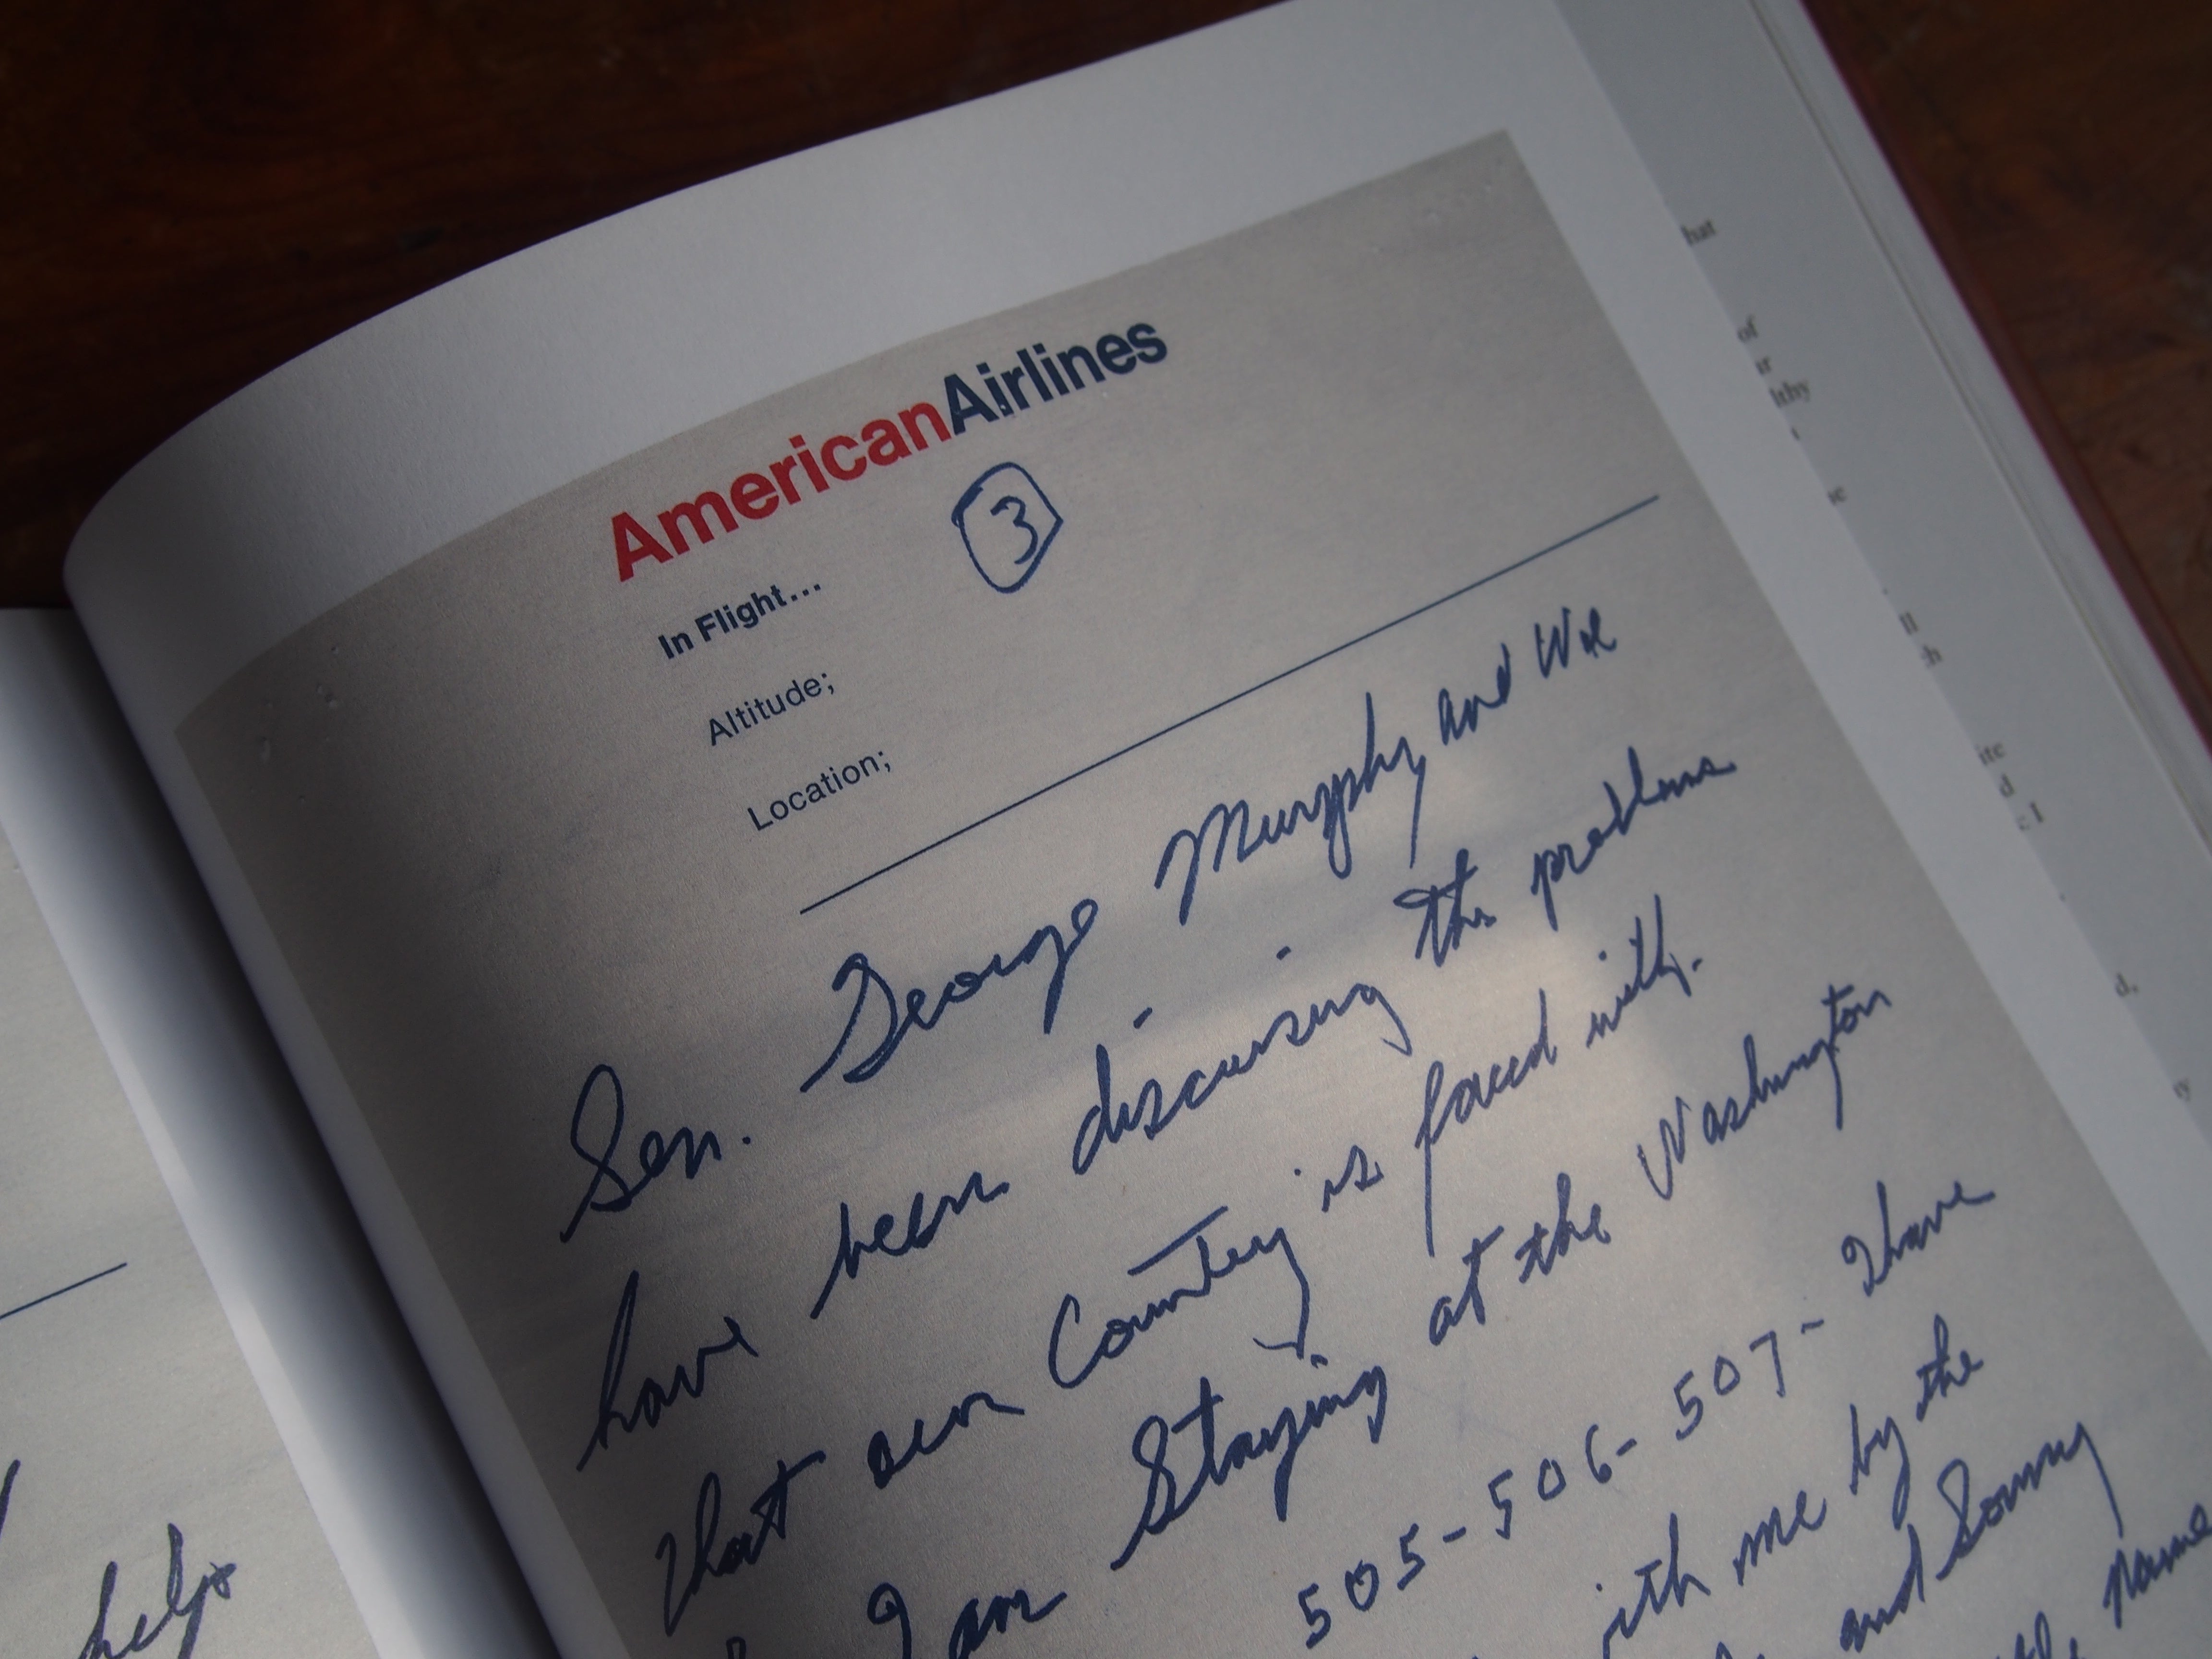 AmericanAirlines
3
In Flight...
Altitude;
Location;
Sen. George Murphy and We
have been discussing the problems
that our Country is faced with.
I am Staying at the Washington
505-506-507- I have
with me by the
and Sonny
name
help
hat
of